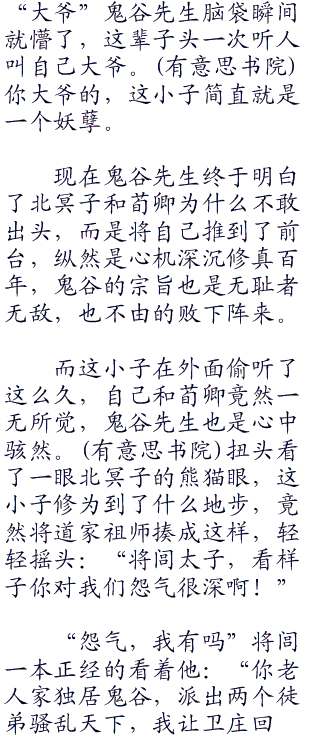 “大爷”鬼谷先生脑袋瞬间
就懵了，这辈子头一次听人
叫自己大爷。(有意思书院)
你大爷的，这小子简直就是
一个妖孽。
现在鬼谷先生终于明白
了北冥子和荀卿为什么不敢
出头，而是将自己推到了前
台，纵然是心机深沉修真百
年，鬼谷的宗旨也是无耻者
无敌，也不由的败下阵来。
而这小子在外面偷听了
这么久，自己和荀卿竟然一
无所觉，鬼谷先生也是心中
骇然。(有意思书院)扭头看
了一眼北冥子的熊猫眼，这
小子修为到了什么地步，竟
然将道家祖师揍成这样，轻
轻摇头：“将闾太子，看样
子你对我们怨气很深啊！”
“怨气，我有吗”将闾
一本正经的看着他：“你老
人家独居鬼谷，派出两个徒
弟骚乱天下，我让卫庄回